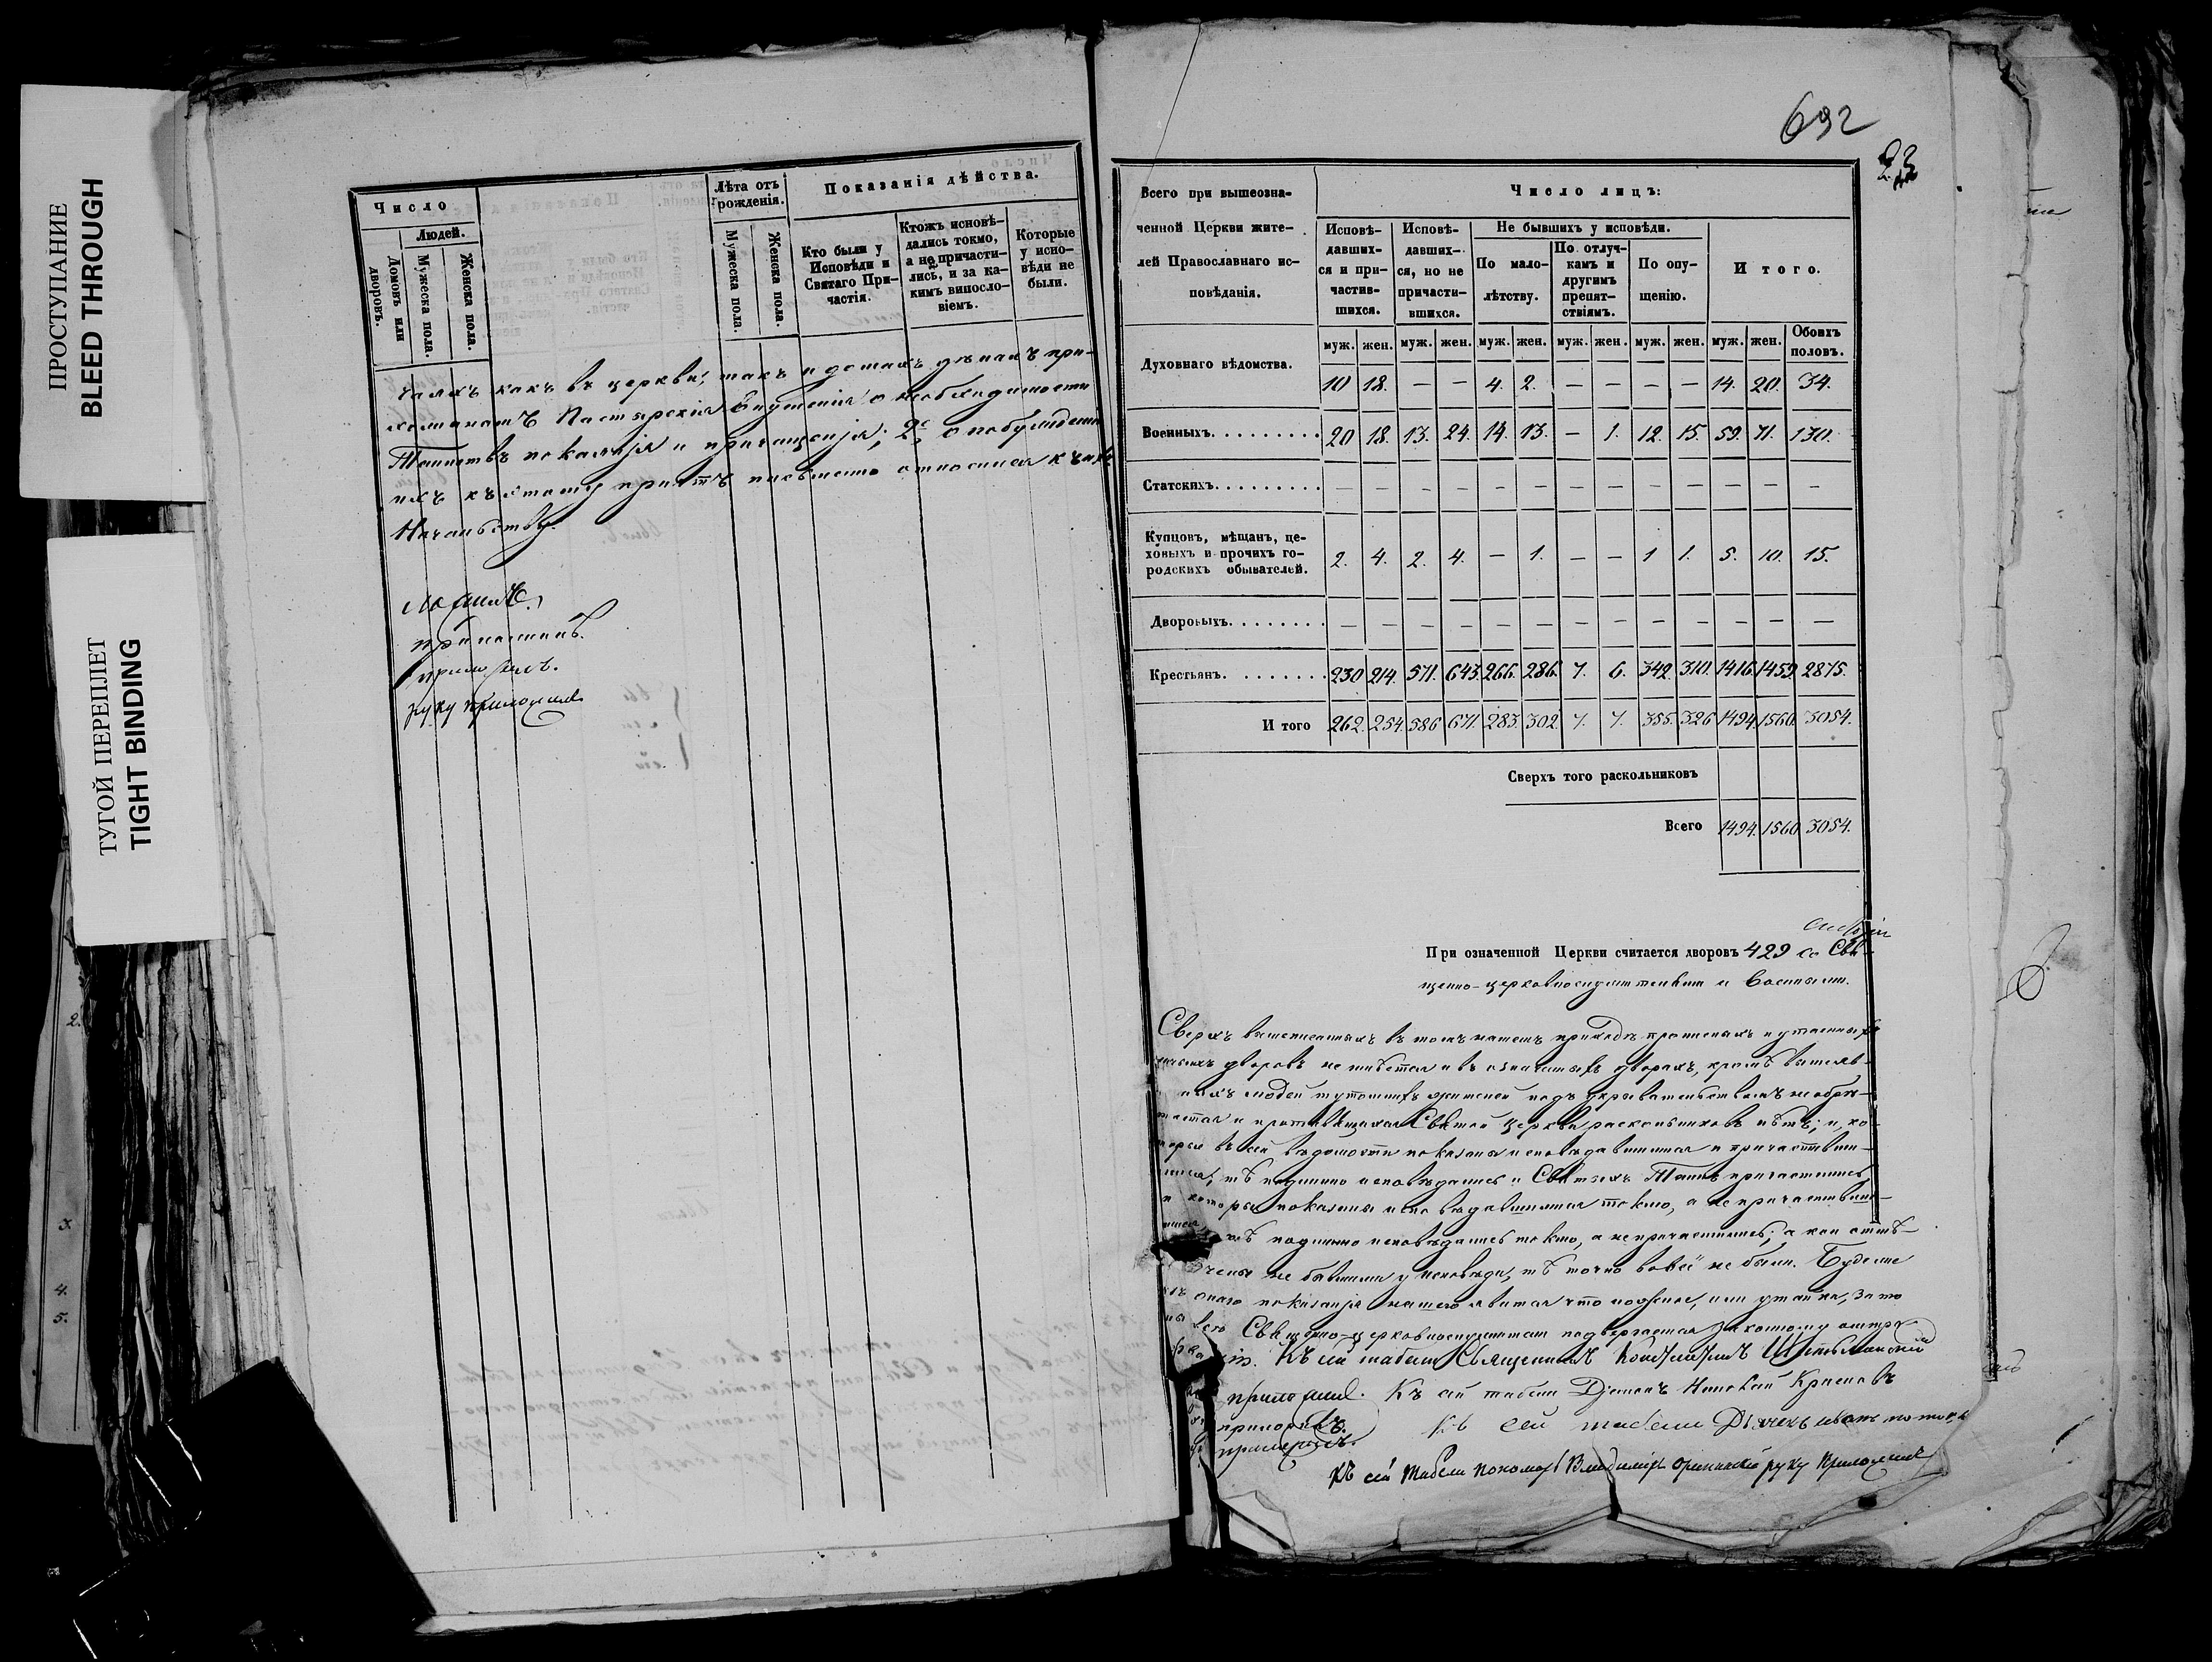 ПРОСТУПАНИЕ
BLEED THROUGH
ТУГОЙ ПЕРЕПЛЕТ
TIGHT BINDING
Число
Людей.
Домовъ или дворовъ.
Мужеска пола.
Женска пола.
Лѣта отъ рожденія.
Мужеска пола.
Женска пола.
Показанія дѣйства.
Кто были у Исповѣди и Святаго Причастія.
Ктожъ исповѣдались токмо, а не причастились, и за какимъ винословіемъ.
Которые у исповѣди не были.
какъ въ церкви, такъ и
Пастырскія внушенія о необходимости
Таинствъ покаянія и причащенія; 2е, о побужденіи
ихъ къ этому причтъ письменно относился къ ихъ
Начальству.
приложилъ.
руку приложилъ
692
23
Всего при вышеозначенной Церкви жителей Православнаго исповѣданія.
Число лицъ:
Исповѣдавшихся и причастившихся.
Исповѣдавшихся, но не причастившихся.
Не бывшихъ у исповѣди.
По малолѣтству.
По отлучкамъ и другимъ препятствіямъ.
По опущенію.
Итого.
муж. жен. муж. жен. муж. жен. муж. жен. муж. жен. муж. жен. Обоихъ половъ.
Духовнаго вѣдомства. 10 18. — — 4. 2. — — — — 14. 20. 34.
Военныхъ. 20 18. 13. 24. 14. 13. — 1. 12. 15. 59. 71. 130.
Статскихъ. — — — — — — — — — — — — —
Купцовъ, мѣщанъ, цеховыхъ и прочихъ городскихъ обывателей. 2. 4. 2. 4. — 1. — — 1 1. 5. 10. 15.
Дворовыхъ. — — — — — — — — — — — — —
Крестьянъ. 230 214. 571. 643. 266. 286. 7. 6. 342. 310. 1416. 1459. 2875.
Итого 262. 254. 586 671. 283. 302. 7. 7. 355. 326 1494. 1560. 3054.
Сверхъ того раскольниковъ
Всего 1494. 1560 3054.
При означенной Церкви считается дворовъ 429 со Свя-
щенно-церковнослужительскими и военными.
Сверхъ вышеписанныхъ въ томъ нашемъ приходѣ
дворовъ не имѣется и въ означенныхъ дворахъ, кромѣ
людей тутошнихъ жителей подъ укрывательствомъ не обрѣ-
тается и противящихся Святой Церкви раскольниковъ нѣтъ; и, ко-
торые въ сей вѣдомости показаны исповѣдавшимися и причастивши-
мися, тѣ подлинно исповѣдались и Святыхъ Таинъ причастились,
а которые показаны исповѣдавшимися токмо, а не причастивши-
мися, тѣ подлинно исповѣдались токмо, а не причастились; а кои отмѣ-
чены не бывшими у исповѣди, тѣ точно вовсе не были. Буде же
изъ онаго показанія нашего явится что ложное, или утайка, за то
Священно-церковнослужители
Къ сей табели Священникъ Константинъ
приложилъ. Къ сей табели Діаконъ Николай Красновъ
приложилъ. Къ сей табели Дьячекъ Иванъ
Къ сей табели Пономарь Владиміръ руку приложилъ